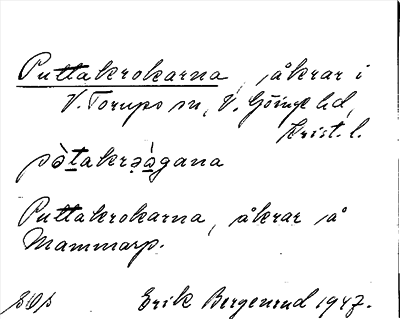 Puttakrokarna, åkrar i
V. Torups sn, V. Göinge hd,
Krist. l.
pò̤takrə̣à̤gana
Puttakrokarna, åkrar å
Mammarp.
Erik Bergenrud 1947.